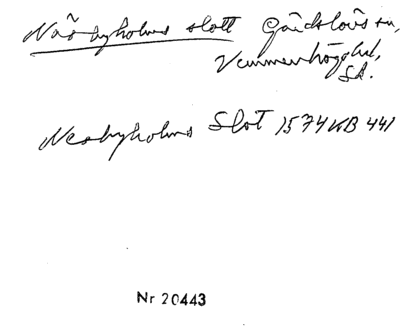 Näsbyholms slott Gärdslövs sn,
Vemmenhögs hd,
Sk.
Nesbyholms Slot 1574 KB 441
Nr 20443